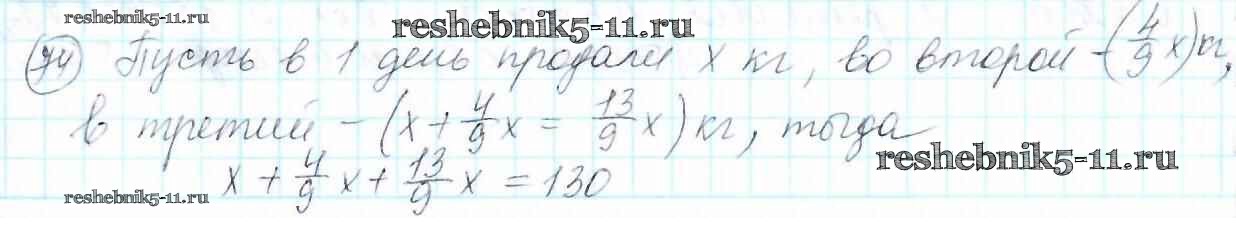 reshebnik5-11.ru
reshebnik5-11.ru
94 Пусть в 1 день продали x кг, во второй - (4/9 x) кг,
в третий - (x + 4/9 x = 13/9 x) кг, тогда
reshebnik5-11.ru
x + 4/9 x + 13/9 x = 130
reshebnik5-11.ru